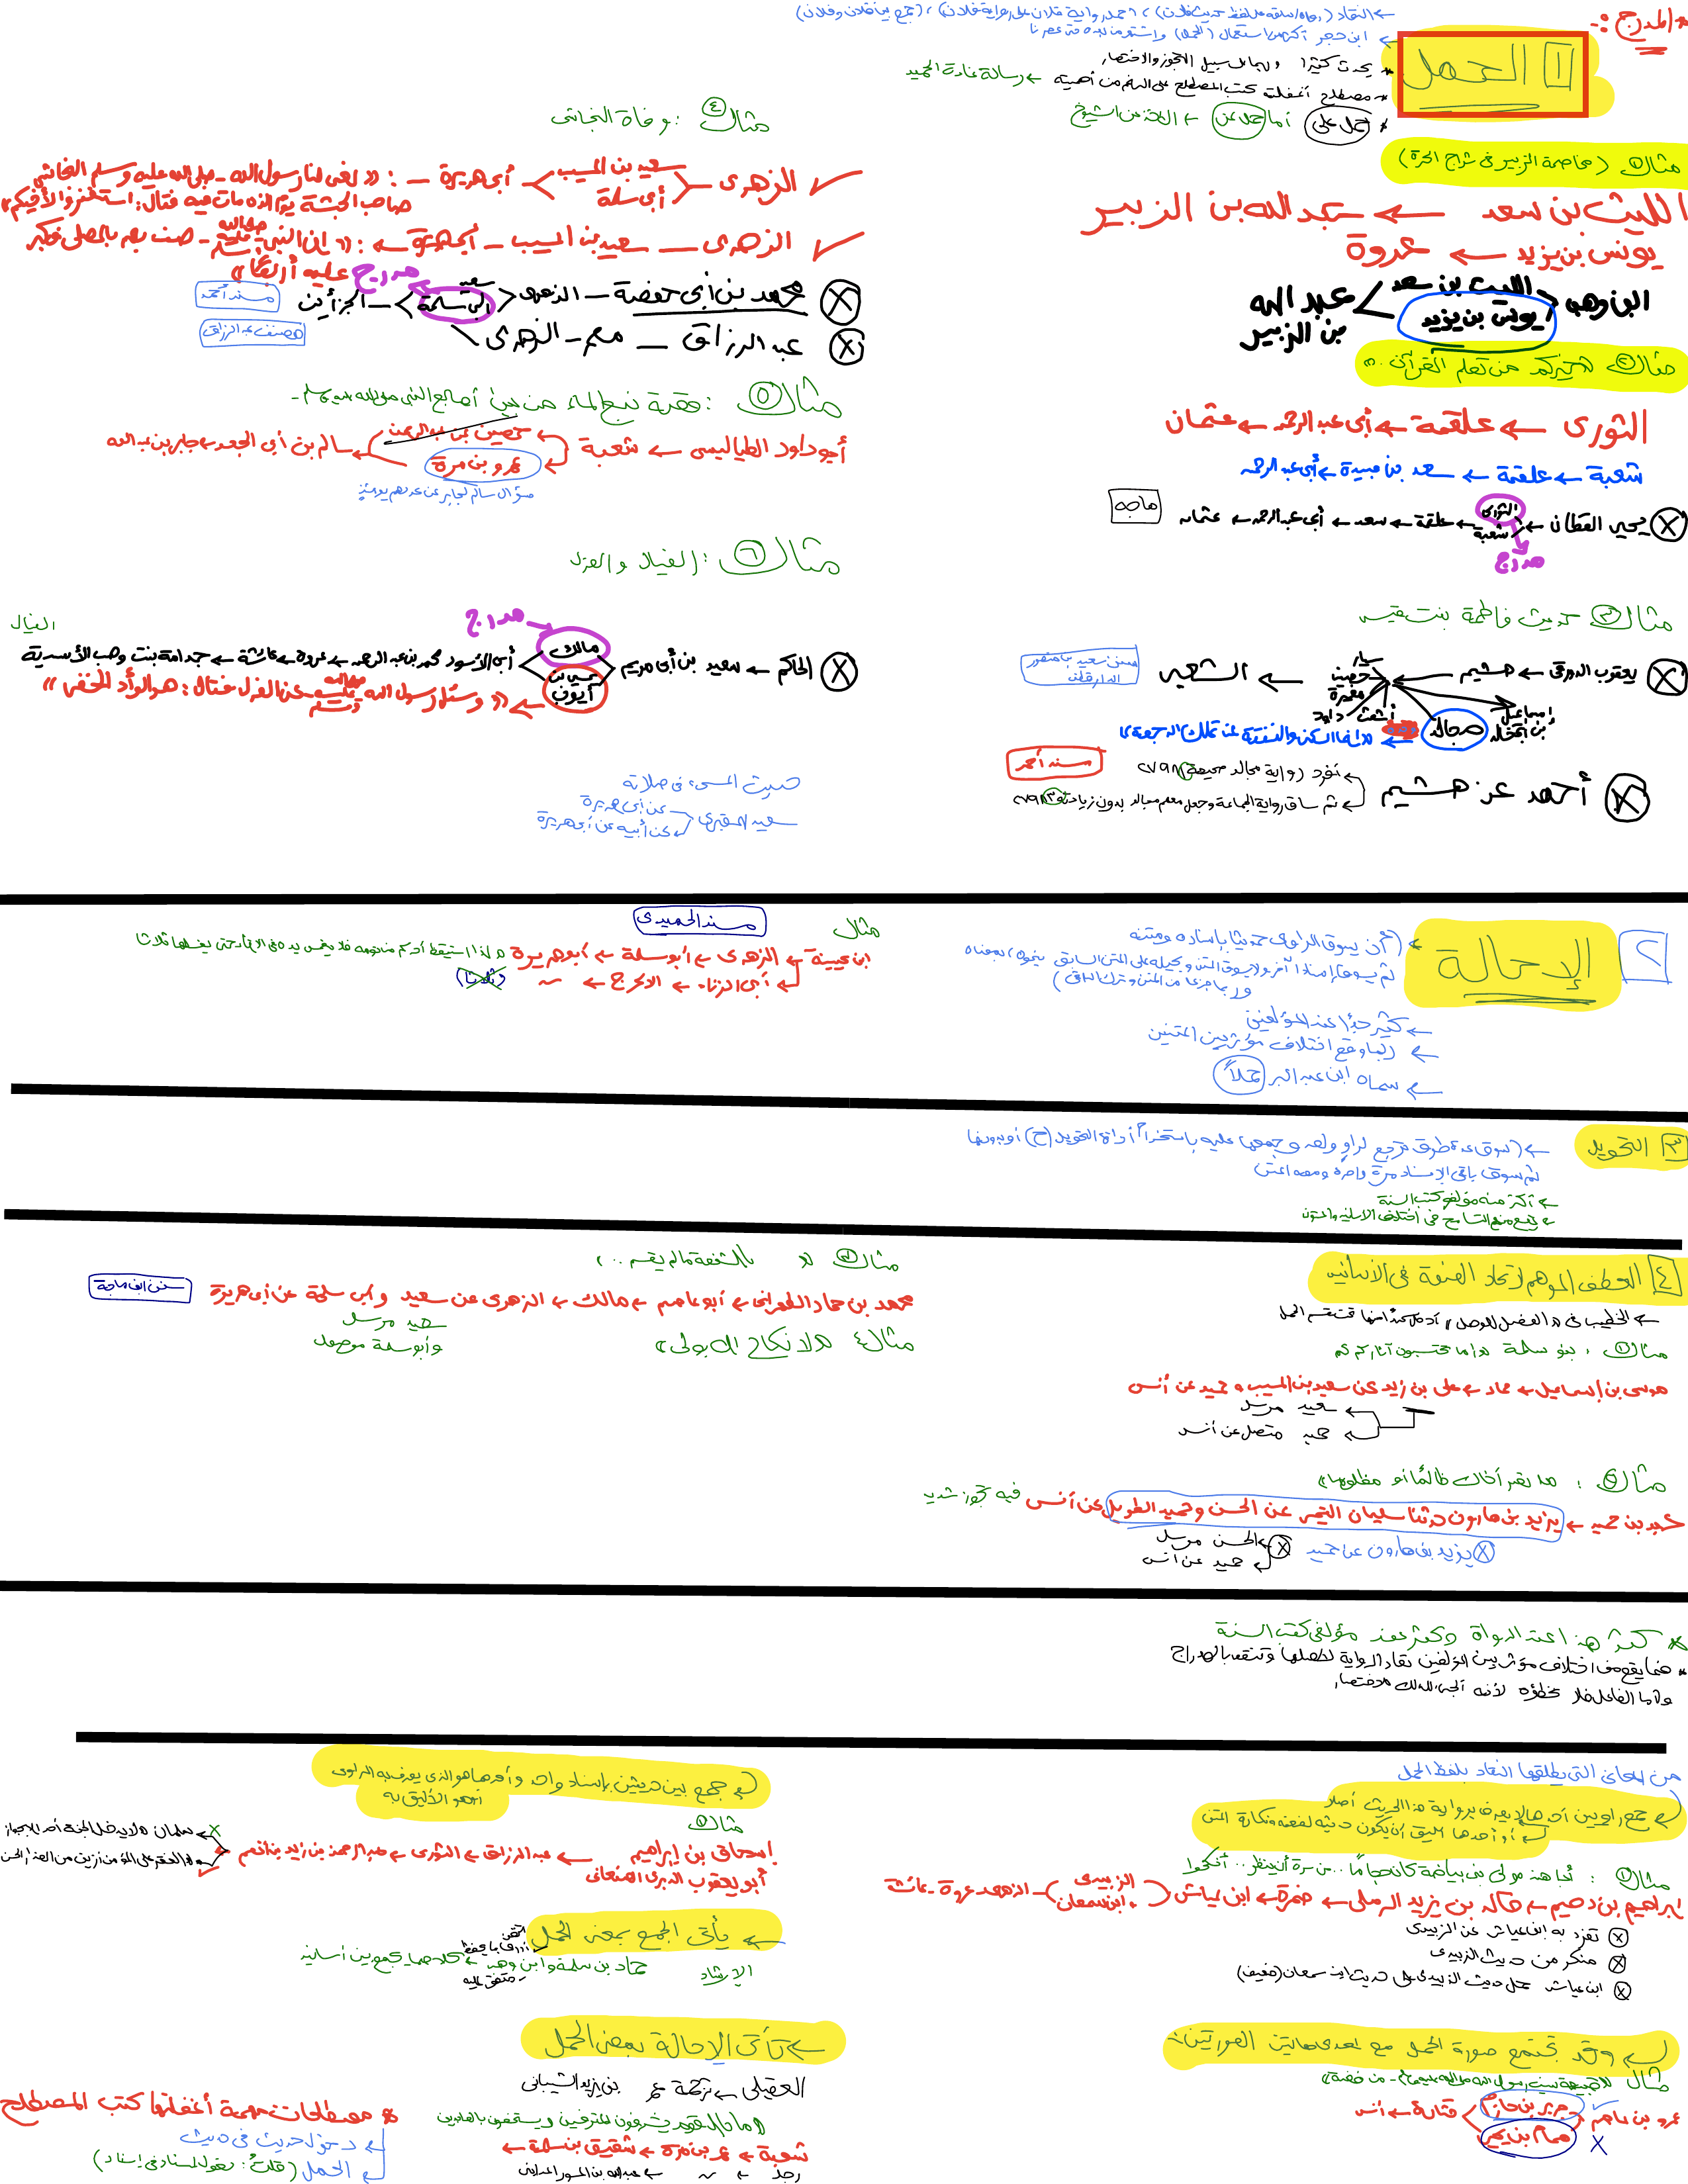 * المدرج :-
١ الحمل
← ابن حجر أكثر من استعمال (الحمل)
* يحدث كثيرا وربما على سبيل التجوز والاختصار
* مصطلح أغفلته كتب المصطلح على الرغم من أهميته ← رسالة غادة الحميد
* حمل على أما حمل عن ← الأخذ من الشيوخ
مثال ١ (مخاصمة الزبير في شراج الحرة)
الليث بن سعد ← عبد الله بن الزبير
يونس بن يزيد ← عروة
ابن وهب الليث بن سعد
يونس بن يزيد
عبد الله بن الزبير
مثال ٢ خيركم من تعلم القرآن ..
الثوري ← علقمة ← أبي عبد الرحمن ← عثمان
شعبة ← علقمة ← سعد بن عبيدة ← أبي عبد الرحمن
يحيى القطان ← الثوري شعبة ← علقمة ← سعد ← أبي عبد الرحمن ← عثمان
ماجه
مدرج
مثال ٣ حديث فاطمة بنت قيس
يعقوب الدورقي ← هشيم ← سيار
حصين
مغيرة
أشعث داود
مجالد
إسماعيل بن أبي خالد
← الشعبي
سنن سعيد بن منصور
الدارقطني
← «إنما السكنى والنفقة لمن تملك الرجعة»
أحمد عن هشيم
تفرد (رواية مجالد صحيحة)
ثم ساق رواية الجماعة وجعل معهم مجالد بدون زيادته
مسند أحمد
مثال ٤ : وفاة النجاشي
الزهري — سعيد بن المسيب
أبي سلمة
— أبي هريرة — : «نعى لنا رسول الله - صلى الله عليه وسلم النجاشي
صاحب الحبشة يوم الذي مات فيه فقال: استغفروا لأخيكم»
الزهري — سعيد بن المسيب — أبي هريرة ← : «إن النبي صلى الله عليه وسلم - صف بهم بالمصلى فكبر
عليه أربعا»
مدرج
محمد بن أبي حفصة — الزهري سعيد
أبي سلمة — الجزأين
مسند أحمد
عبد الرزاق — معمر — الزهري
مصنف عبد الرزاق
مثال ٥ : قصة نبع الماء من بين أصابع النبي صلى الله عليه وسلم -
أبو داود الطيالسي ← شعبة ← حصين بن عبد الرحمن
عمرو بن مرة
← سالم بن أبي الجعد ← جابر بن عبد الله
سؤال سالم لجابر عن عددهم يومئذ
مثال ٦ : الغيال والعزل
مدرج
الغيال
الحاكم ← سعيد بن أبي مريم مالك
يحيى بن أيوب
أبي الأسود محمد بن عبد الرحمن ← عروة ← عائشة ← جدامة بنت وهب الأسدية
← «وسئل رسول الله صلى الله عليه وسلم عن العزل فقال: هو الوأد الخفي»
حديث المسيء في صلاته
سعيد المقبري عن أبي هريرة
عن أبيه عن أبي هريرة
٢ الإحالة
← (أن يسوق الراوي حديثا بإسناده ومتنه
ثم يسوق إسنادا آخر ولا يسوق المتن ويحيله على المتن السابق بنحوه / بمعناه
وربما جزءا من المتن وترك الباقي)
← كثير جدا عند المؤلفين
← ربما وقع اختلاف مؤثر بين المتنين
← سماه ابن عبد البر حملاً
مثال
مسند الحميدي
ابن عيينة ← الزهري ← أبو سلمة ← أبو هريرة «إذا استيقظ أحدكم من نومه فلا يغمس يده في الإناء حتى يغسلها ثلاثا
← أبي الزناد ← الأعرج ← ~ (ثلاثا)
٣ التحويل
← (سوق عدة طرق ترجع لراو واحد ويجمعون عليه باستخدام أداة التحويل (ح) أو بدونها
ثم سوق باقي الإسناد مرة واحدة ومعه المتن
← أكثر منه مؤلفو كتب السنة
← يقع منهم التسامح في اختلاف الأسانيد والمتون
٤ العطف الموهم لاتحاد الصيغة في الأسانيد
← الخطيب في «الفصل للوصل»
مثال ١ : بنو سلمة «أما تحتسبون آثاركم
موسى بن إسماعيل ← حماد ← علي بن زيد عن سعيد بن المسيب وحميد عن أنس
← سعيد مرسل
← حميد متصل عن أنس
مثال ٢ : «انصر أخاك ظالمًا أو مظلوما»
عبد بن حميد ← يزيد بن هارون حدثنا سليمان التيمي عن الحسن وحميد الطويل عن أنس فيه تجوز شديد
يزيد بن هارون عن حميد
الحسن مرسل
حميد عن أنس
مثال ٣ « بالشفعة مالم يقسم ..»
محمد بن حماد الطهراني ← أبو عاصم ← مالك ← الزهري عن سعيد وأبي سلمة عن أبي هريرة
سنن ابن ماجه
سعيد مرسل
وأبو سلمة موصول
مثال ٤ «لا نكاح إلا بولي»
* كثير هذا عند الرواة وكثير عند مؤلفي كتب السنة
* فما يقع من اختلاف مؤثر بين المؤلفين نقاد الرواية
وأما الفاعل فلا تخطؤه لأنه ألجئ لذلك للاختصار
من المعاني التي يطلقها النقاد بلفظ الحمل
← جمع راويين أحدهما لا يعرف برواية هذا الحديث أصلا
← أو أحدهما أليق أن يكون حديثه لضعفه ونكارة المتن
مثال ١ : أبا هند مولى بني بياضة كان حجامًا .. من سره أن ينظر .. أنكحوا
إبراهيم بن دحيم ← خالد بن يزيد الرملي ← ضمرة ← ابن عياش (الزبيدي
وابن سمعان) — الزهري عروة ـ عائشة
تفرد به ابن عياش عن الزبيدي
منكر من حديث الزبيدي
ابن عياش حمل حديث الزبيدي على حديث ابن سمعان (ضعيف)
← وقد تجتمع صورة الحمل مع إحدى هاتين الصورتين :
مثال «قبيعة سيف رسول الله صلى الله عليه وسلم - من فضة»
عمرو بن عاصم جرير بن حازم
همام بن يحيى
قتادة ← أنس
← جمع بين حديثين بإسناد واحد وأحدهما هو الذي يعرف به الراوي
أو هو الأليق به
مثال ٥
إسحاق بن إبراهيم ← عبد الرزاق ← الثوري ← عبد الرحمن بن زياد بن أنعم
أبو يعقوب الدبري الصنعاني
سلمان «لا يدخل الجنة أحد إلا بجواز
«الفقر على المؤمن أزين من العذار الحسن
← يأتي الجمع بمعنى الحمل
الإرشاد حماد بن سلمة وابن وهب ← كلاهما يجمع بين أسانيد
متفق عليه
← تأتي الإحالة بمعنى الحمل
العقيلي ← ترجمة عمر بن يزيد الشيباني
«ما بال أقوام يشرفون المترفين ويستخفون بالعابدين
شعبة ← عمر بن مرة ← شقيق بن سلمة ←
* مصطلحات مهمة أغفلتها كتب المصطلح
← دخول حديث في حديث
← الحمل (قلت: دخول إسناد في إسناد)